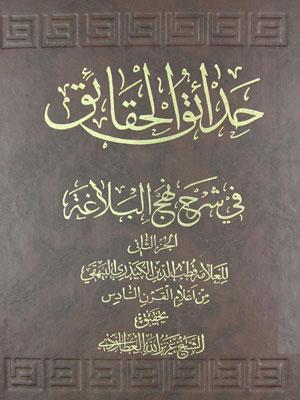 حدائق الحقائق
في شرح نهج البلاغة
الجزء الثاني
للعلامة قطب الدين الكيذري البيهقي
من أعلام القرن السادس
تحقيق
الشيخ عزيز الله العطاردي